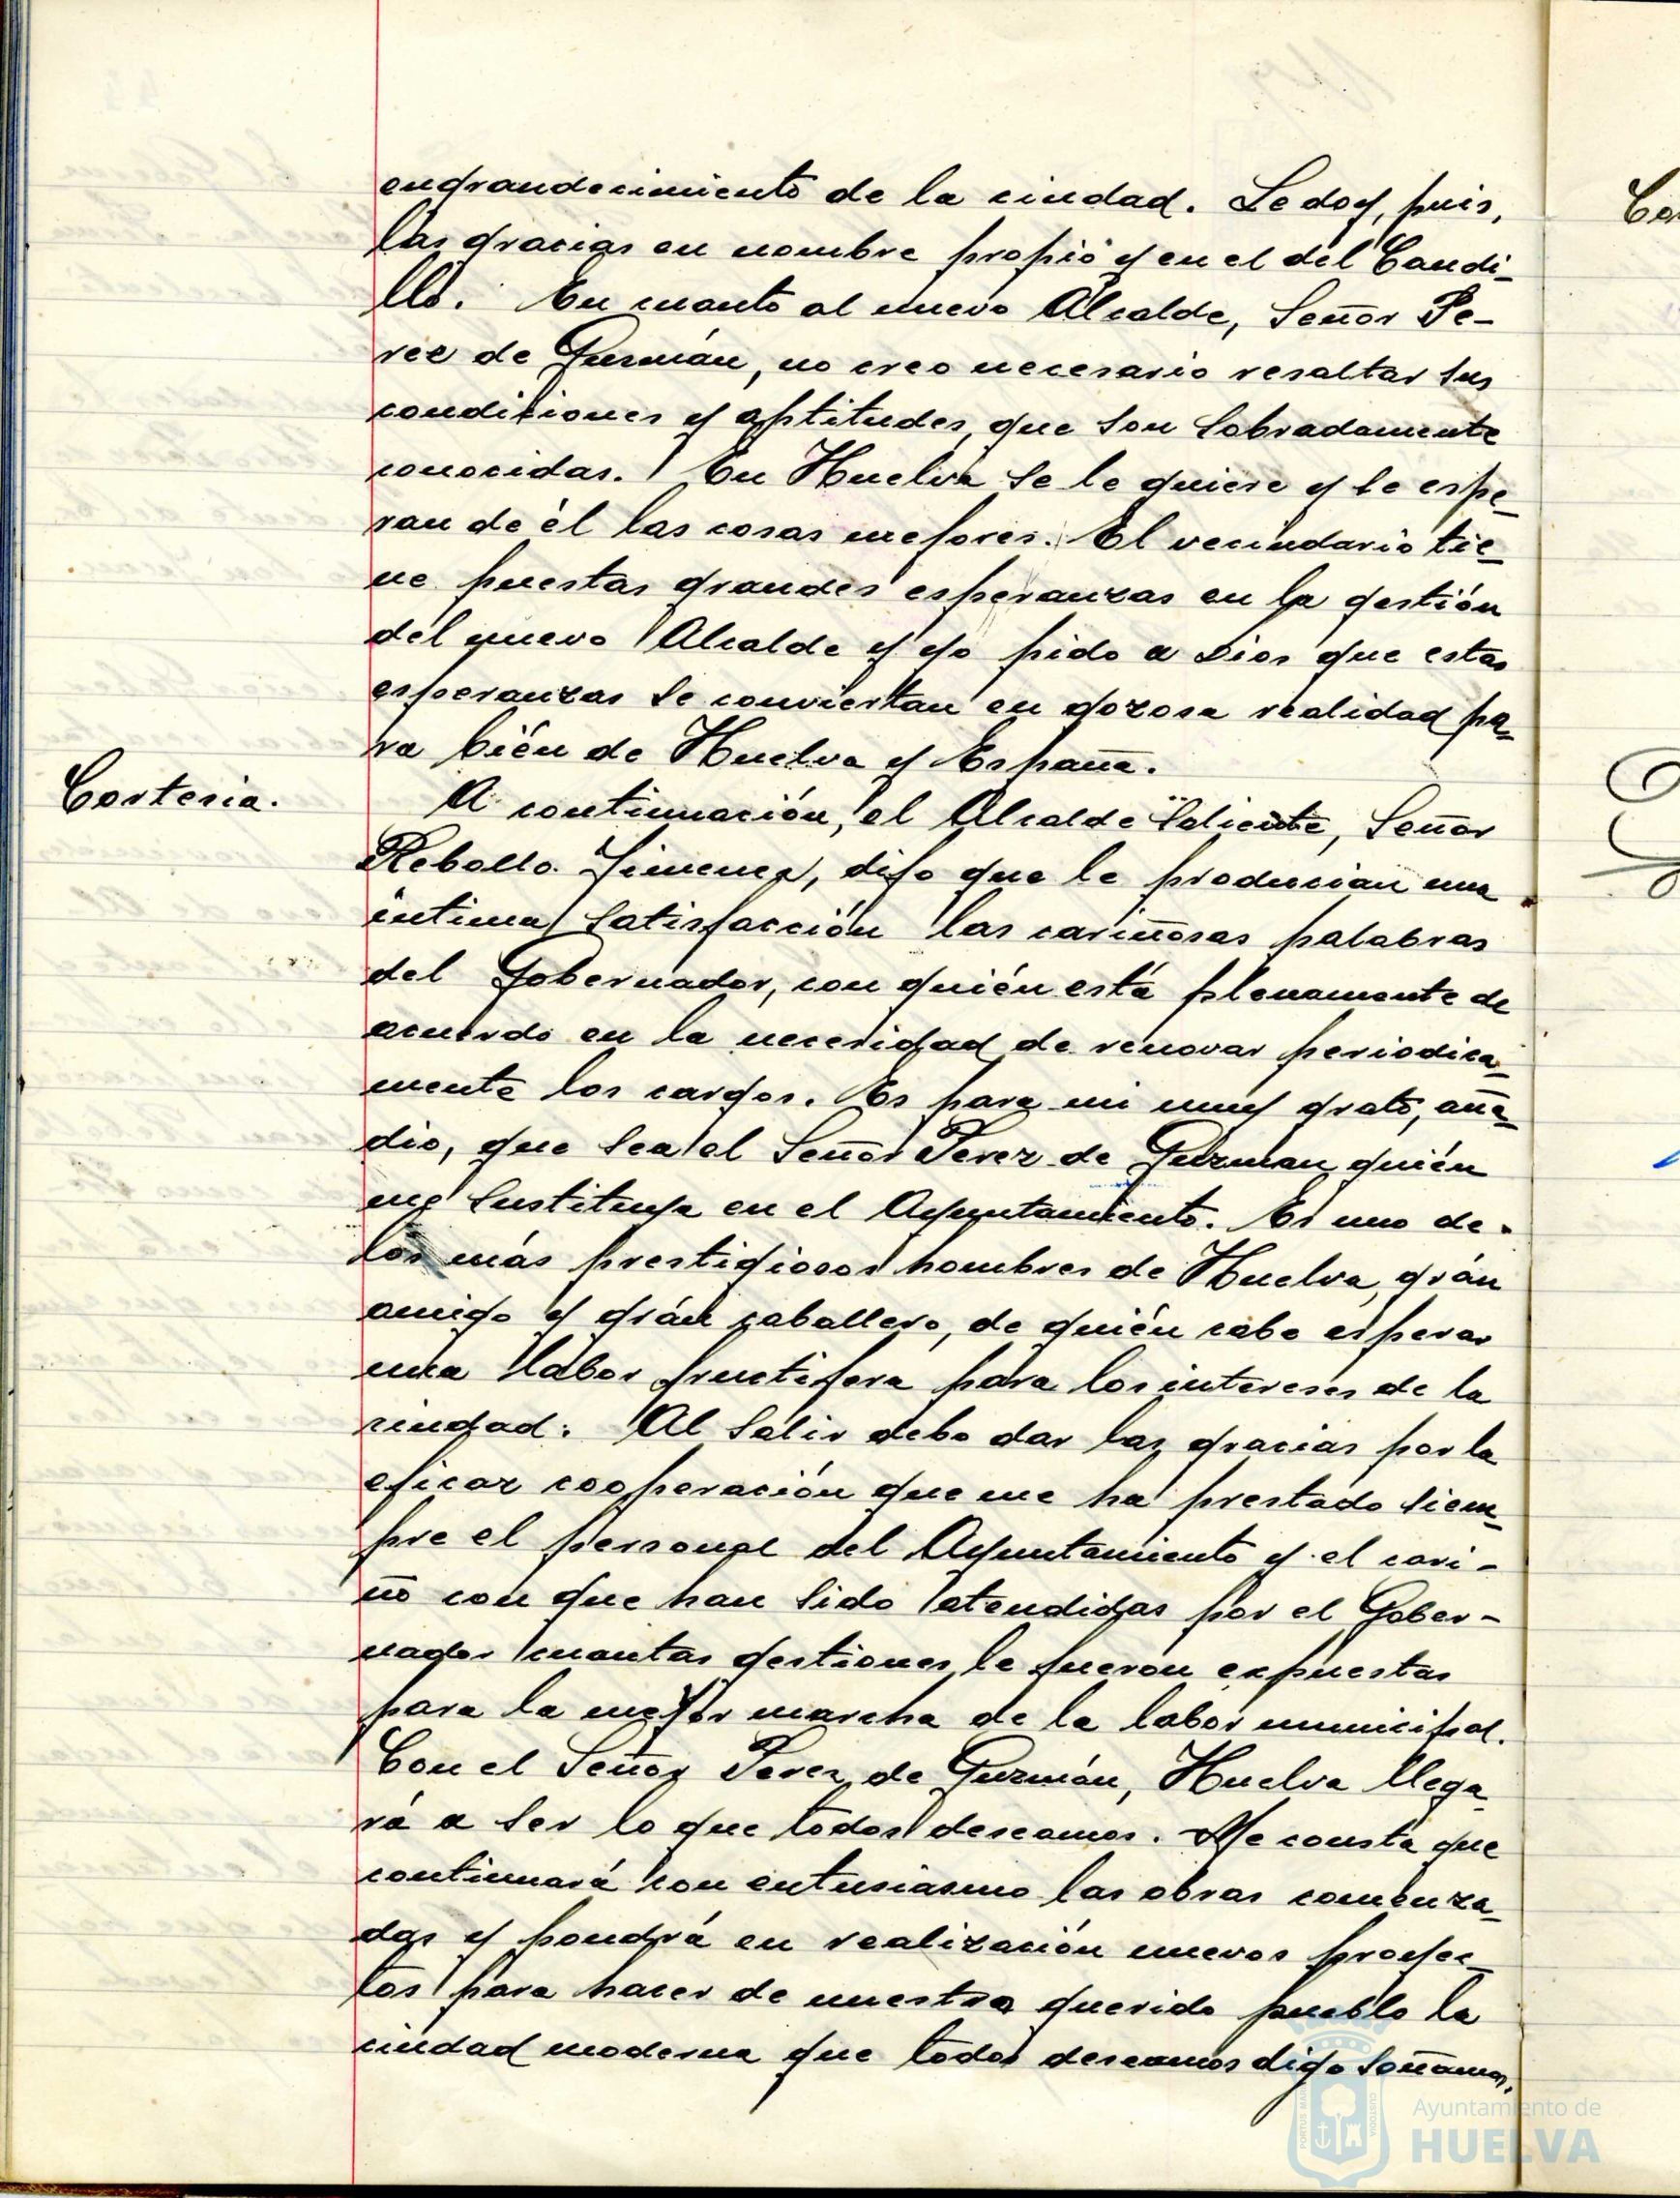 engrandecimiento de la ciudad. Le doy, pues,
las gracias en nombre propio y en el del Caudi-
llo. En cuanto al nuevo Alcalde, Señor Pe-
rez de Guzmán, no creo necesario resaltar sus
condiciones y aptitudes, que son sobradamente
conocidas. En Huelva se le quiere y se espe-
ran de él las cosas mejores. El vecindario tie-
ne puestas grandes esperanzas en la gestión
del nuevo Alcalde y yo pido a Dios que estas
esperanzas se conviertan en gozosa realidad pa-
ra bién de Huelva y España.
Cortesia.
A continuación, el Alcalde saliente, Señor
Rebollo Jimenez, dijo que le producian una
intima satisfacción las cariñosas palabras
del Gobernador, con quién está plenamente de
acuerdo en la necesidad de renovar periodica-
mente los cargos. Es para mi muy grato, aña-
dio, que sea el Señor Perez de Guzman quién
me sustituya en el Ayuntamiento. Es uno de
los más prestigiosos hombres de Huelva, grán
amigo y grán caballero, de quién cabe esperar
una labor fructifera para los intereses de la
ciudad. Al salir debo dar las gracias por la
eficaz cooperación que me ha prestado siem-
pre el personal del Ayuntamiento y el cari-
ño con que han sido atendidas por el Gober-
nador cuantas gestiones le fueron expuestas
para la mejor marcha de la labor municipal.
Con el Señor Perez de Guzmán, Huelva llega-
rá a ser lo que todos deseamos. Me consta que
continuará con entusiasmo las obras comenza-
das y pondrá en realización nuevos proyec-
tos para hacer de nuestro querido pueblo la
ciudad moderna que todos deseamos digo soñamos,
Co
Ayuntamiento de
HUELVA